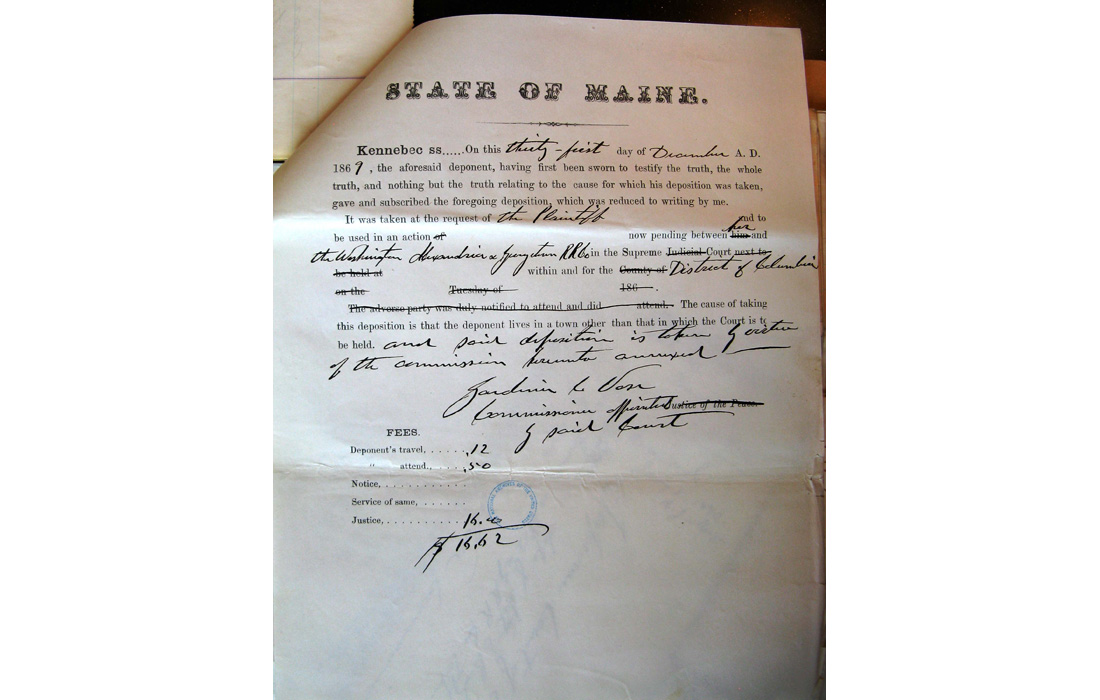 STATE OF MAINE.
Kennebec ss......On this thirty-first day of December A. D.
1869, the aforesaid deponent, having first been sworn to testify the truth, the whole
truth, and nothing but the truth relating to the cause for which his deposition was taken,
gave and subscribed the foregoing deposition, which was reduced to writing by me.
It was taken at the request of the Plaintiff and to
her
be used in an action of now pending between him and
the Washington Alexandria & Georgetown RR Co in the Supreme Judicial Court next to
be held at within and for the County of District of Columbia
on the Tuesday of 186 .
The adverse party was duly notified to attend and did attend. The cause of taking
this deposition is that the deponent lives in a town other than that in which the Court is to
be held. and said deposition is taken by virtue
of the commission hereunto annexed
Gardiner C Vose
Commissioner appointed Justice of the Peace.
by said Court
FEES.
Deponent's travel, . . . . . . ,12
" attend., . . . . . ,50
Notice, . . . . . . . . . . .
Service of same, . . . . . . .
Justice, . . . . . . . . . . 16.00
$ 16,62